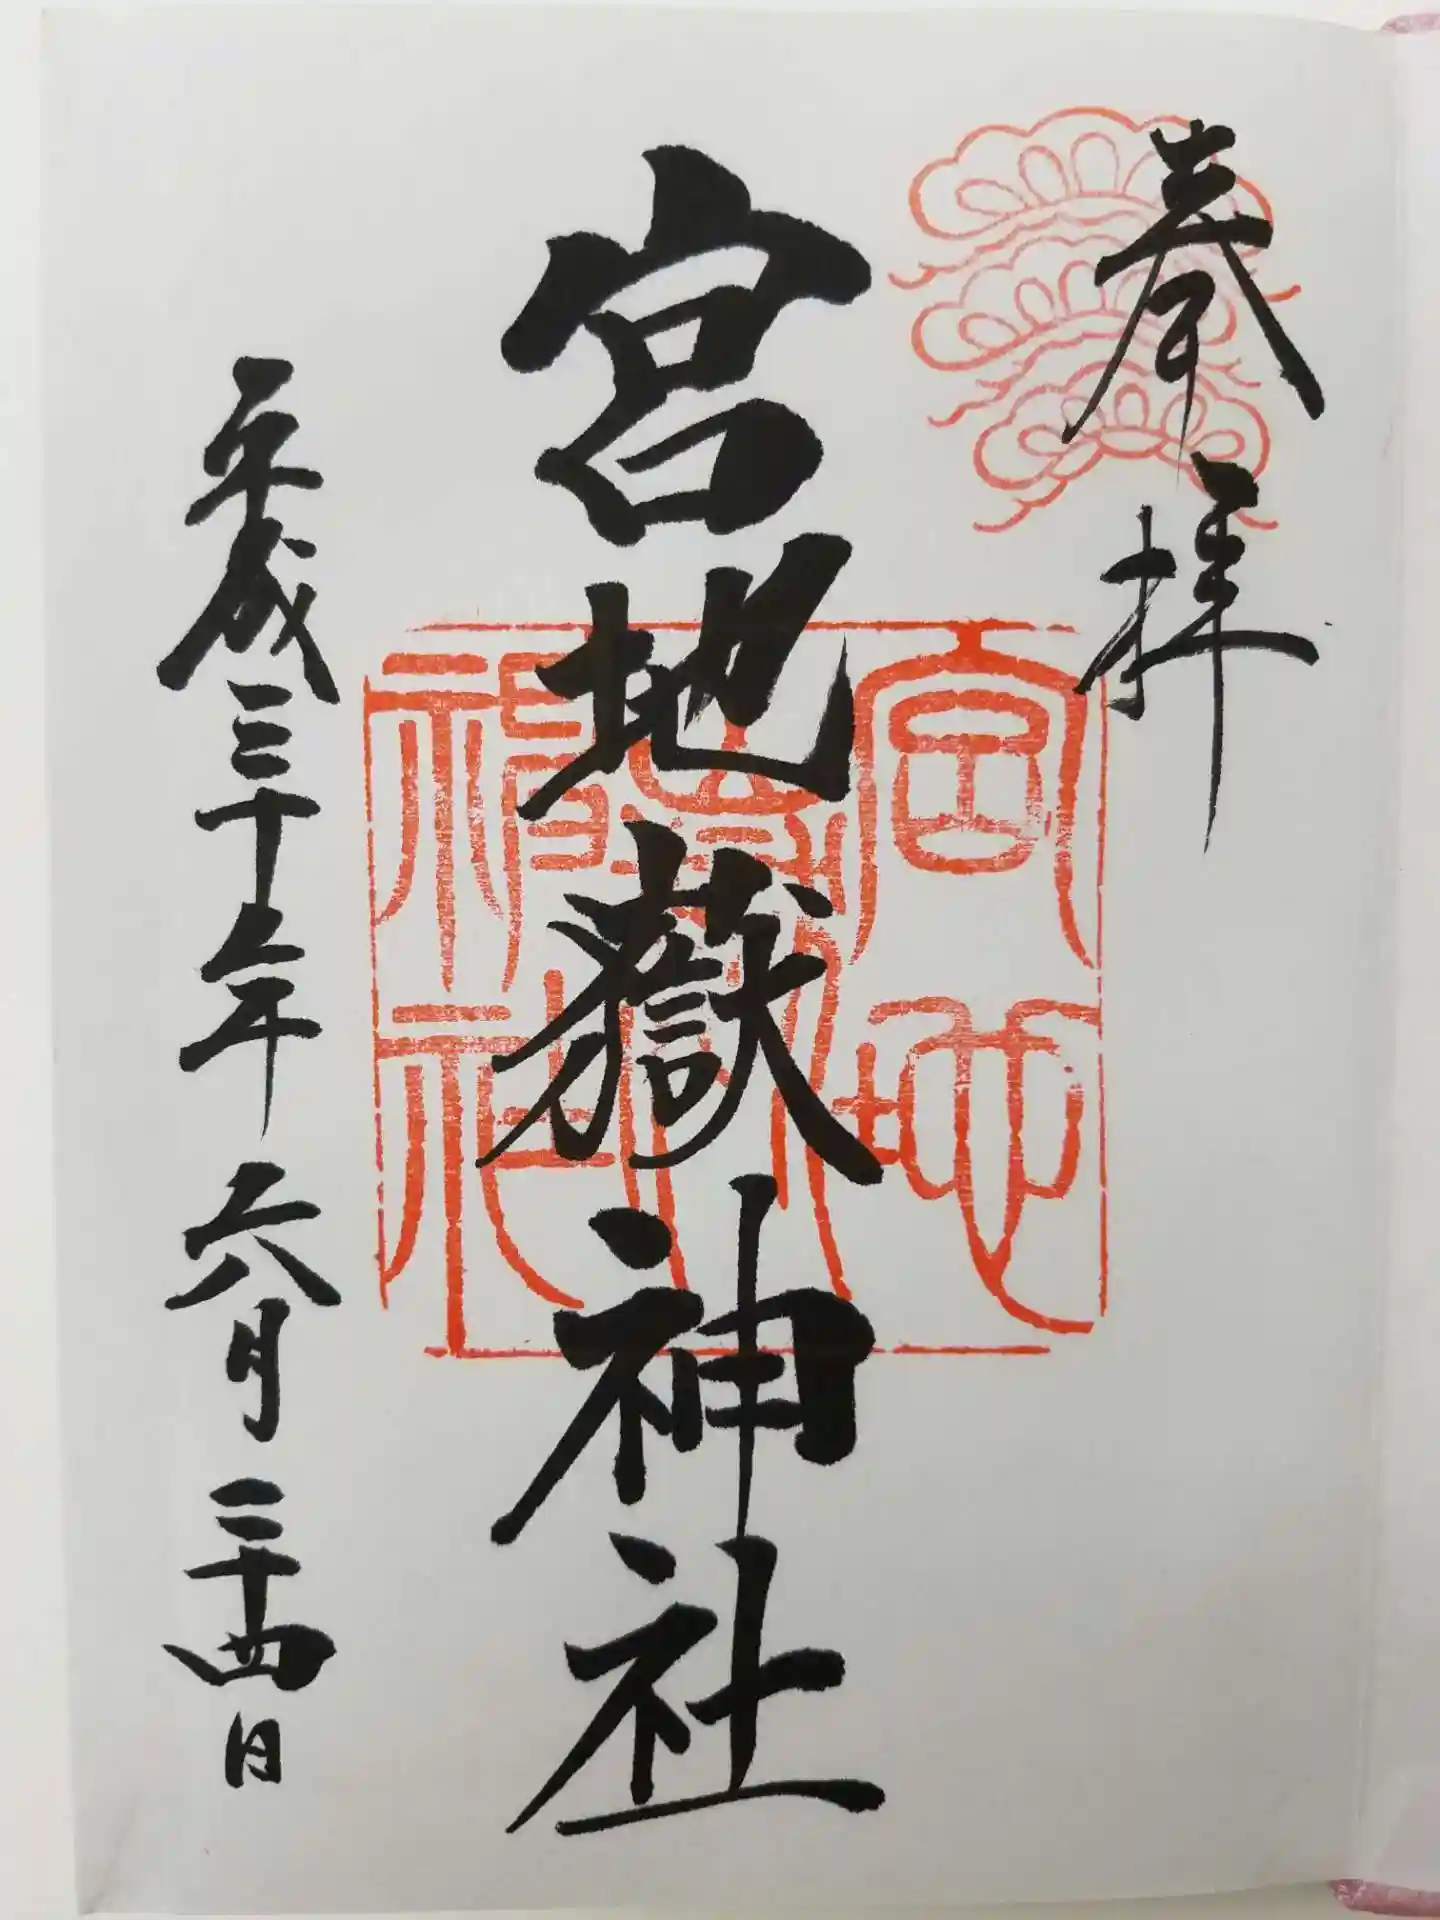 奉拝
宮地嶽神社
平成三十年六月二十四日
宮地
嶽神
社